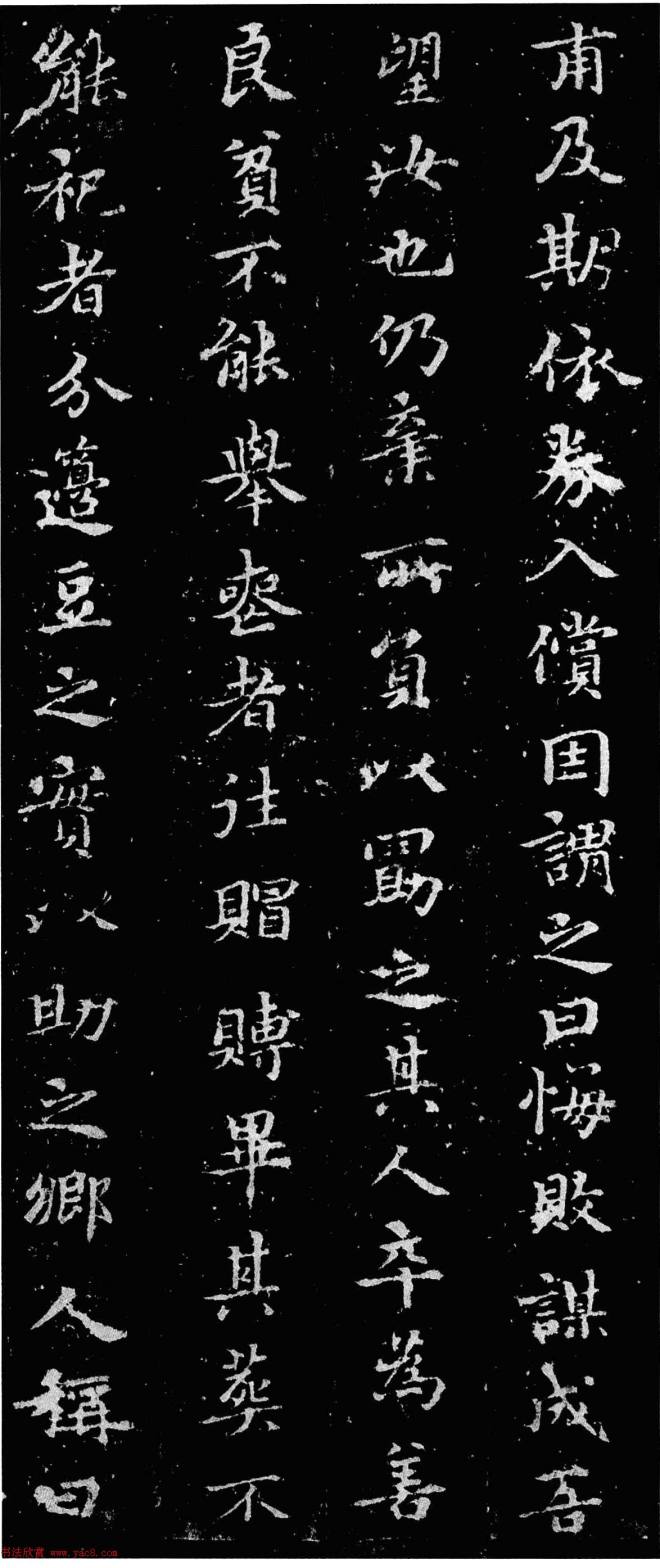 甫及期依券入償因謂之曰悔敗謀成吾
望汝也仍棄所負以勖之其人卒為善
良貧不能舉喪者往賵賻畢其葬不
能祀者分籩豆之實以助之鄉人稱曰
书法欣赏 www.yac8.com